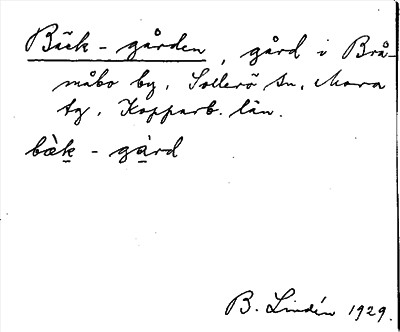 Bäck-gården, gård i Brå-
måbo by, Sollerö sn, Mora
tg, Kopparb. län.
bäk - gård
B. Lindén 1929.